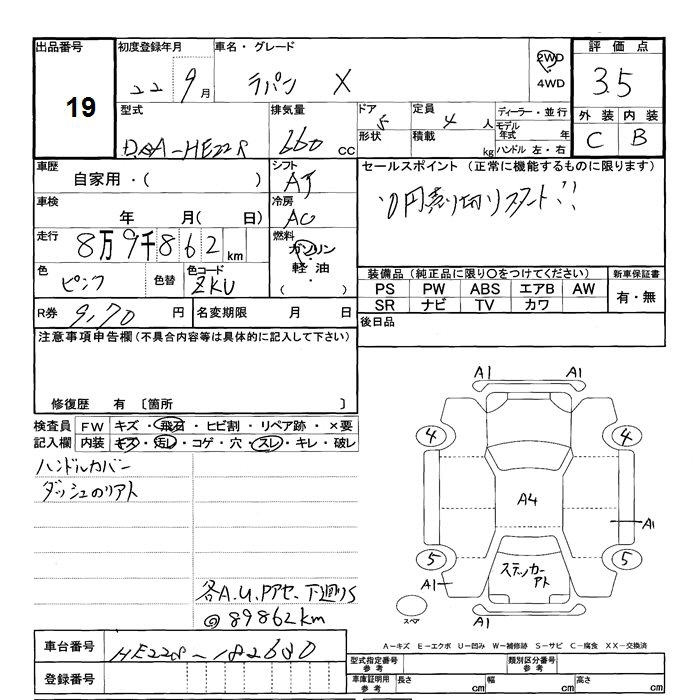 出品番号 初度登録年月 車名・グレード 2WD 4WD 評価点
19 22 9月 ラパン X 3.5
型式 排気量 ドア 5 定員 4人 ディーラー・並行 外装 内装
DBA-HE22S 660cc 形状 積載 kg モデル年式 年 C B
ハンドル 左・右
車歴 シフト セールスポイント (正常に機能するものに限ります)
自家用・( ) AT
車検 冷房 0円売り切りスタート!!
年 月( 日) AC
走行 燃料
8万9千862km ガソリン
軽油
色 色替 色コード ・ 装備品(純正品に限り○をつけてください) 新車保証書
ピンク ZKU ( ) PS PW ABS エアB AW 有・無
SR ナビ TV カワ
R券 9,170円 名変期限 月 日 後日品
注意事項申告欄(不具合内容等は具体的に記入して下さい)
修復歴 有 〔箇所 〕
検査員 FW キズ・飛石・ヒビ割・リペア跡・×要
記入欄 内装 キズ・汚レ・コゲ・穴・スレ・キレ・破レ
ハンドルカバー
ダッシュのリアト
各A.U.Pアセ、下廻りS
@89862km
A1 A1
4 4
A4
A1
5 5
ステッカー
アト
A1
スペア A1
車台番号 HE22S-182680
A-キズ E-エクボ U-凹み W-補修跡 S-サビ C-腐食 XX-交換済
登録番号
型式指定番号 参考 類別区分番号 参考
車庫証明用 参考 長さ cm 幅 cm 高さ cm